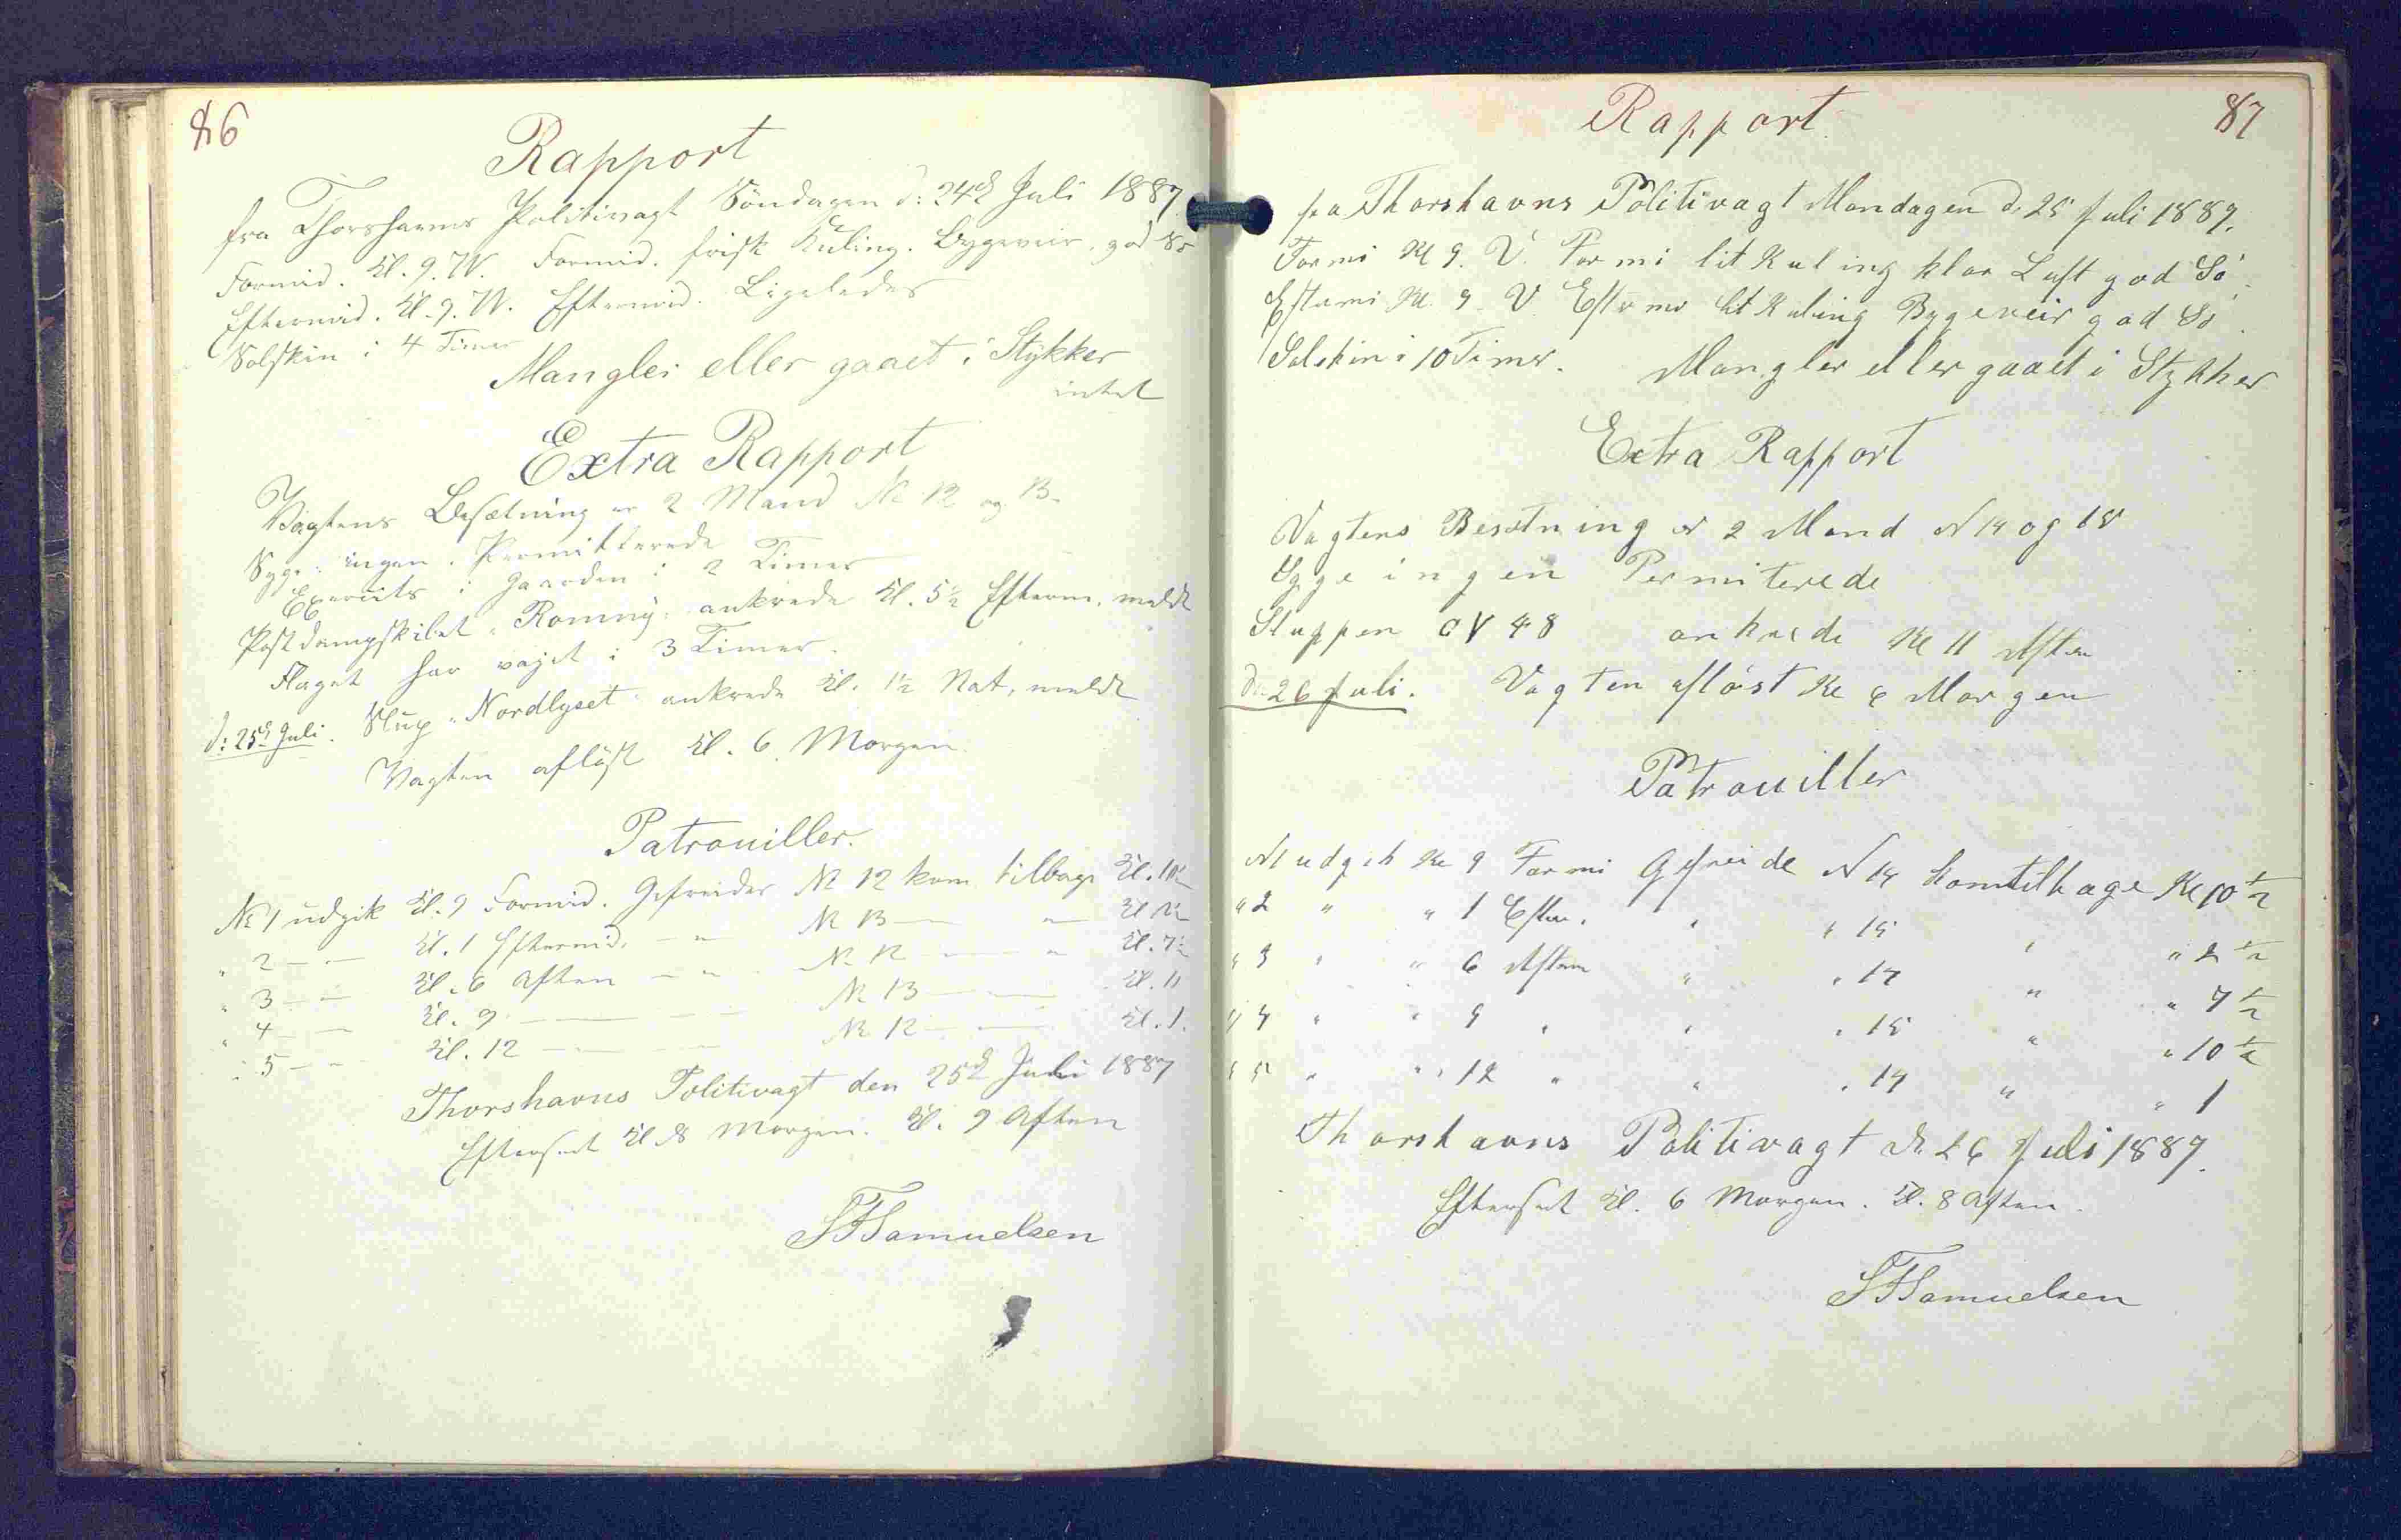 86
Rapport
fra Thorshavns Politivagt Söndagen d: 24d Juli 1887.
Formid. Kl. 9. W. Formid. frisk Kuling. Bygeveir. god Sö
Eftermid. Kl. 9. W. Eftermid. Ligeledes
Solskin i 4 Timer
Mangler eller gaaet i Stykker
intet
Extra Rapport
Vagtens Besætning er 2 Mand № 12 og 13.
Syge: ingen. Permitterede
Exercits i Gaarden i 2 Timer
Postdampskibet "Romny" ankrede Kl. 5½ Efterm. meldt
Flaget har vajet i 3 Timer.
d: 25d Juli. Slup "Nordlyset" ankrede Kl. 1½ Nat, meldt
Vagten aflöst Kl. 6 Morgen
Patrouiller.
№ 1 udgik Kl. 9 Formid. Gefreider № 12 kom tilbage Kl. 10½
" 2 — — Kl. 1 Eftermid. — " № 13 — — Kl.
" 3 — — Kl. 6 Aften — " № 12 — — " Kl. 7½
" 4 — — Kl. 9 — — — № 13 — — Kl. 11
" 5 — " Kl. 12 — — — № 12 — — Kl. 1.
Thorshavns Politivagt den 25d Juli 1887
Efterseet Kl. 8 Morgen. Kl. 9 Aften
SFSamuelsen
87
Rapport
fra Thorshavns Politivagt Mandagen d: 25 Juli 1887.
Formi Kl 9. V. Formi lit Kuling klar Luft god Sö.
Eftermi Kl. 9. V. Eftrmi lit Kuling Bygeveir god Sö.
Solskin i 10 Timer.
Mangler eller gaaet i Stykker
Extra Rapport
Vagtens Besætning er 2 Mand N 14 og 15
Syge ingen Permiterede
Sluppen CV 48 ankrede Kl 11 Aften
D: 26 Juli. Vagten aflöst Kl 6 Morgen
Patrouiller
N1 udgik Kl 9 Formi Gefreide N 14 kom tilbage Kl 10 ½
" 2 " " 1 Efter. " " 15 " " 2 ½
" 3 " " 6 Aften " " 14 " " 7 ½
" 4 " " 9 " " " 15 " " 10 ½
" 5 " " 12 " " " 14 " " 1
Thorshavns Politivagt d: 26 Juli 1887.
Efterseet Kl. 6 Morgen. Kl. 8 Aften.
SFSamuelsen